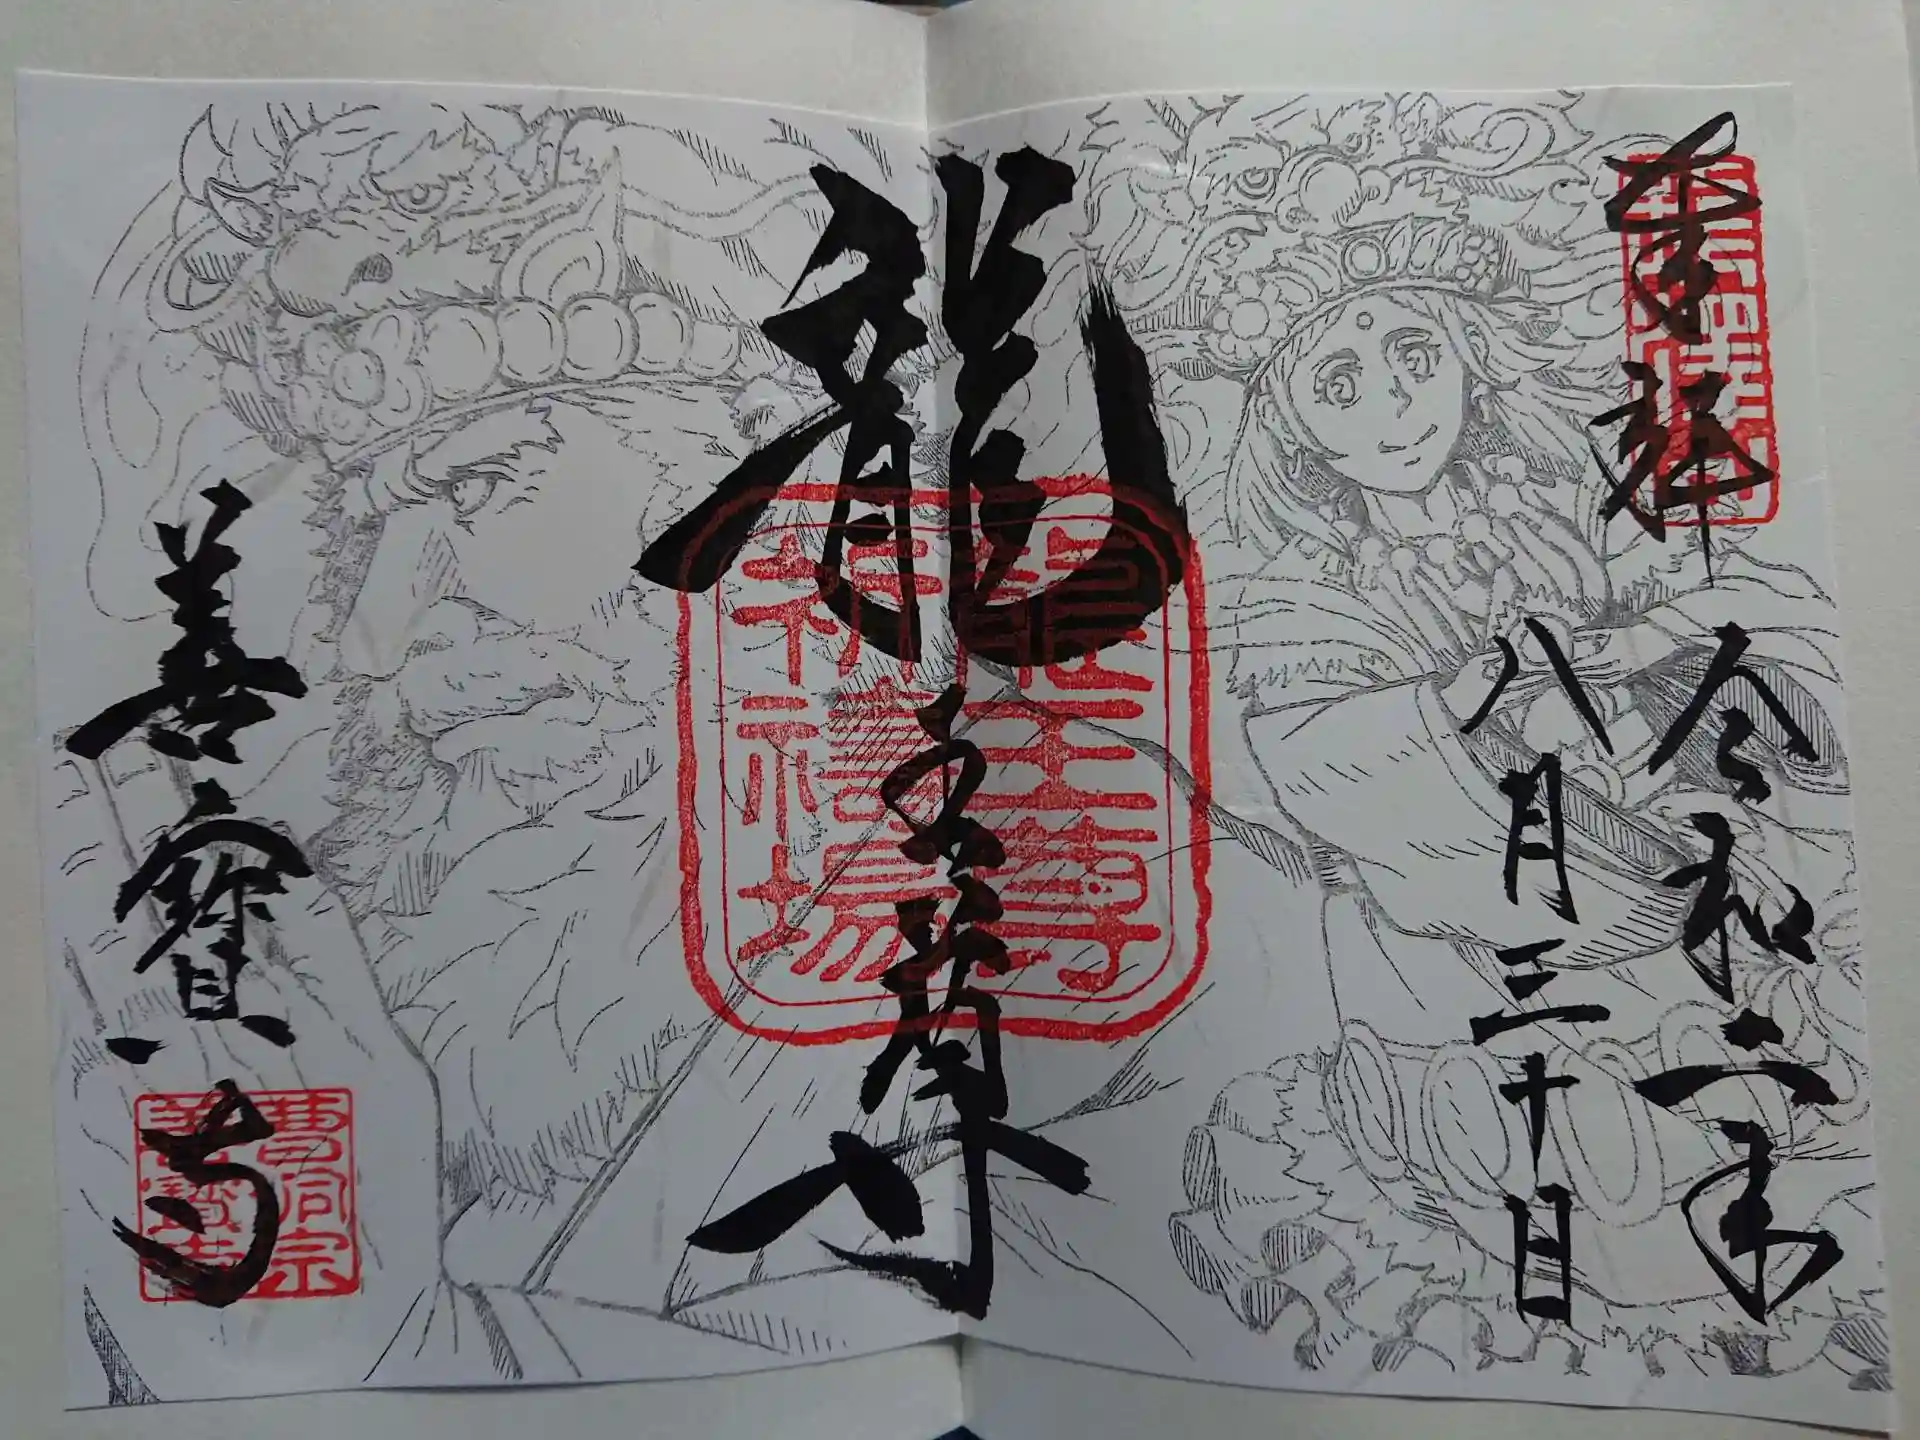 奉拝
令和二年
八月三十日
龍王尊
龍王尊
祈禱場
善寳寺
曹洞宗
善寳寺